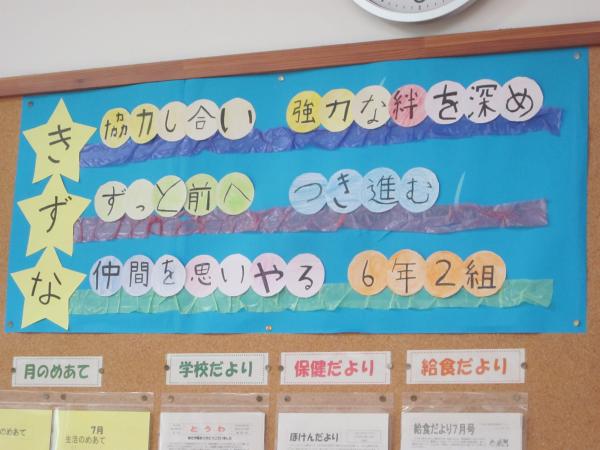 き 協力し合い 強力な絆を深め
ず ずっと前へ つき進む
な 仲間を思いやる 6年2組
月のめあて 学校だより 保健だより 給食だより
のめあて
7月
生活のめあて
とうわ
ほけんだより
給食だより7月号